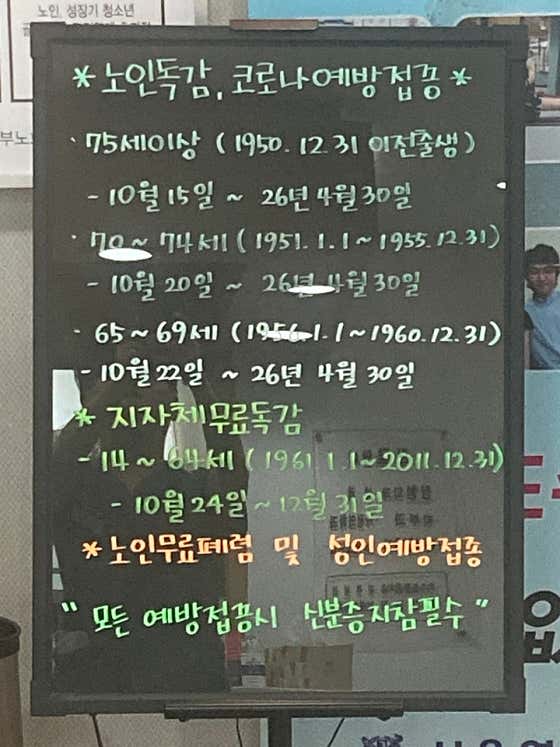 노인, 성징기 청소년
* 노인독감, 코로나예방접종 *
· 75세이상 ( 1950. 12. 31 이전출생 )
- 10월 15일 ~ 26년 4월 30일
· 70 ~ 74세 ( 1951. 1. 1 ~ 1955. 12. 31 )
- 10월 20일 ~ 26년 4월 30일
· 65 ~ 69세 ( 1956. 1. 1 ~ 1960. 12. 31 )
- 10월 22일 ~ 26년 4월 30일
* 지자체무료독감
- 14 ~ 64세 ( 1961 1. 1 ~ 2011. 12. 31 )
- 10월 24일 ~ 12월 31일
* 노인무료폐렴 및 성인예방접종
" 모든 예방접종시 신분증지참필수 "